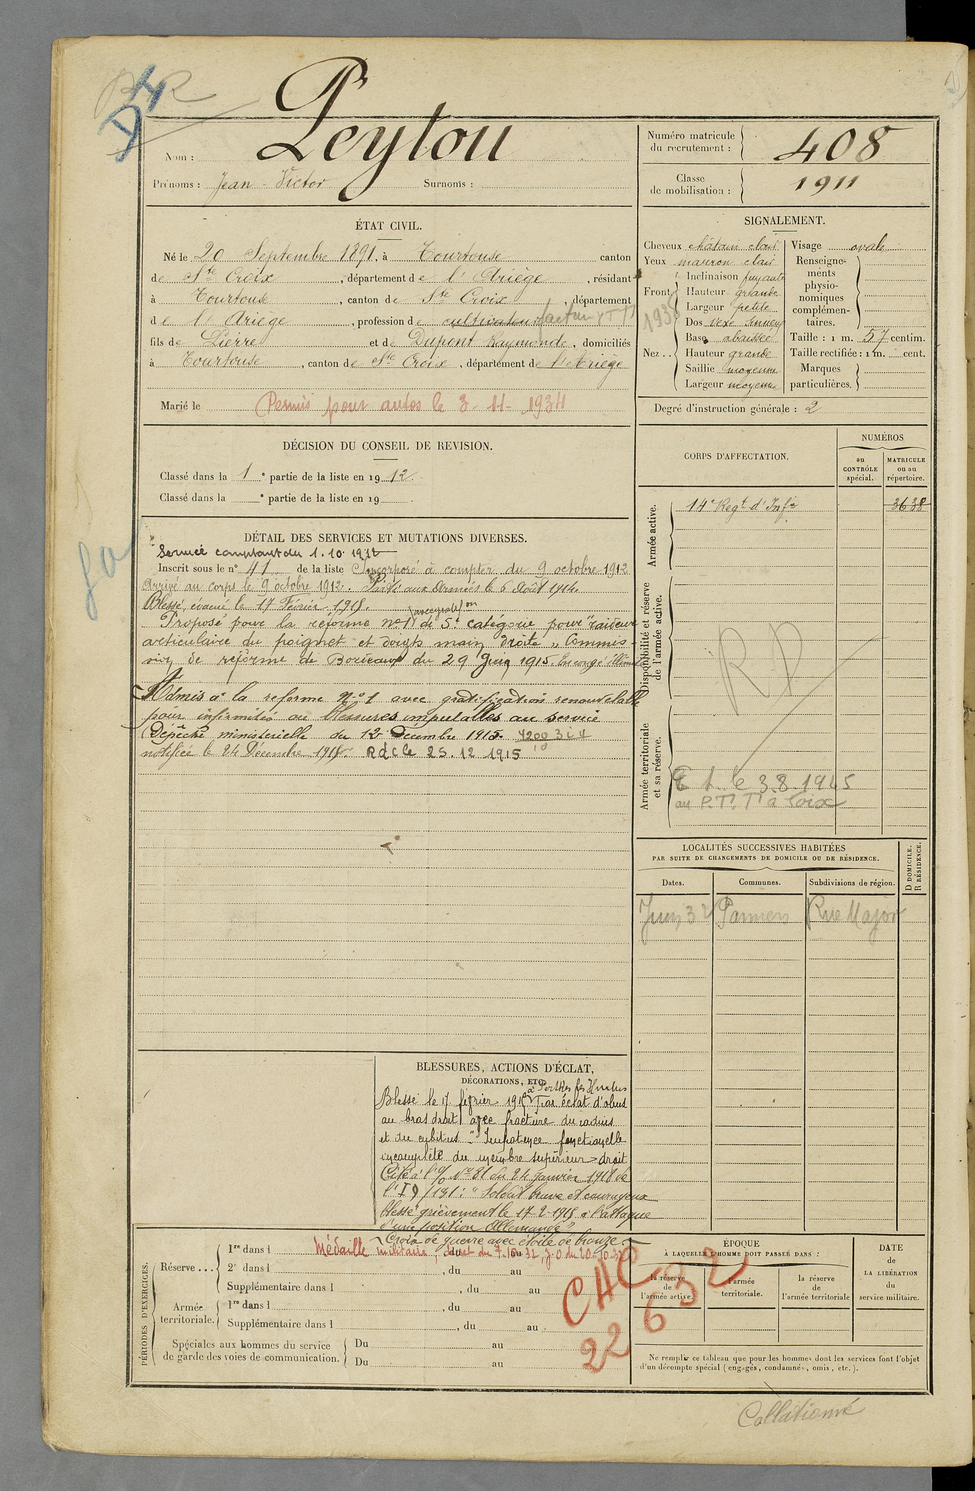 BR
D4
Nom : Peytou
Prénoms : Jean - Victor Surnoms :
Numéro matricule du recrutement : 408
Classe de mobilisation : 1911
ÉTAT CIVIL.
Né le 20 Septembre 1891, à Tourtouse canton
de Ste Croix, département de l'Ariège, résidant
à Tourtouse, canton de Ste Croix, département
de l'Ariège, profession de cultivateur facteur PTT
fils de Pierre et de Dupont Raymonde, domiciliés
à Tourtouse, canton de Ste Croix, département de l'Ariège
Marié le Permis pour autos le 3-11-1934
SIGNALEMENT.
Cheveux châtain clair
Yeux marron clair
Front Inclinaison fuyante
Hauteur grande
Largeur petite
1935
Nez .. Dos vexe sinueux
Base abaissée
Hauteur grande
Saillie moyenne
Largeur moyenne
Visage ovale
Renseignements physionomiques complémentaires.
Taille : 1 m. 57 centim.
Taille rectifiée : 1 m. cent.
Marques particulières.
Degré d'instruction générale : 2
DÉCISION DU CONSEIL DE REVISION.
Classé dans la 1e partie de la liste en 1912.
Classé dans la e partie de la liste en 19 .
CORPS D'AFFECTATION.
NUMÉROS
au CONTRÔLE spécial.
MATRICULE ou au répertoire.
Armée active.
14e Regt d'Infie 3638
Disponibilité et réserve de l'armée active.
RD
Armée territoriale et sa réserve.
le 3.8.1945
au P.T.T à Foix
DÉTAIL DES SERVICES ET MUTATIONS DIVERSES.
Service comptant du 1.10.1912
Inscrit sous le no 41 de la liste Incorporé à compter du 9 octobre 1912
Arrivé au corps le 9 octobre 1912. Parti aux Armées le 6 Août 1914.
Blessé, évacué le 17 Février 1915.
Proposé pour la réforme No 1 de 5e catégorie pour raideur
articulaire du poignet et doigts main droite, Commis
sion de réforme de Bordeaux du 29 Juin 1915
Admis à la reforme No 1 avec gratification renouvelable
pour infirmités ou blessures imputables au service
Dépêche ministerielle du 12 Décembre 1915.
notifiée le 24 Décembre 1915. RdC le 25.12.1915
LOCALITÉS SUCCESSIVES HABITÉES
PAR SUITE DE CHANGEMENTS DE DOMICILE OU DE RÉSIDENCE.
D DOMICILE.
R RÉSIDENCE.
Dates. Communes. Subdivisions de région.
Juin 32 Pamiers Rue Major
BLESSURES, ACTIONS D'ÉCLAT,
DÉCORATIONS, ETC.
à Perthes les Hurlus
Blessé le 17 février 1915 Par éclat d'obus
au bras droit avec fracture du radius
et du cubitus. Impotence fonctionnelle
incomplète du membre supérieur droit
Cité à l'O/ No 81 du 24 janvier 1918 de
l'I D/131 : "Soldat brave et courageux
blessé grièvement le 17-2-1915 à l'attaque
d'une position Allemande"
Croix de guerre avec étoile de bronze.
Médaille militaire, décret du 7.10.32, J.O du 20.10.32
PÉRIODES D'EXERCICES.
Réserve ... 1re dans l , du au
2e dans l , du au
Supplémentaire dans l , du au
Armée territoriale. 1re dans l , du au
Supplémentaire dans l , du au
Spéciales aux hommes du service de garde des voies de communication. Du au
Du au
CAC
22 6 32
ÉPOQUE
À LAQUELLE L'HOMME DOIT PASSER DANS :
la réserve de l'armée active. l'armée territoriale. la réserve de l'armée territoriale
DATE DE LA LIBÉRATION du service militaire.
Ne remplir ce tableau que pour les hommes dont les services font l'objet
d'un décompte spécial (engagés, condamnés, omis, etc.).
Collationné